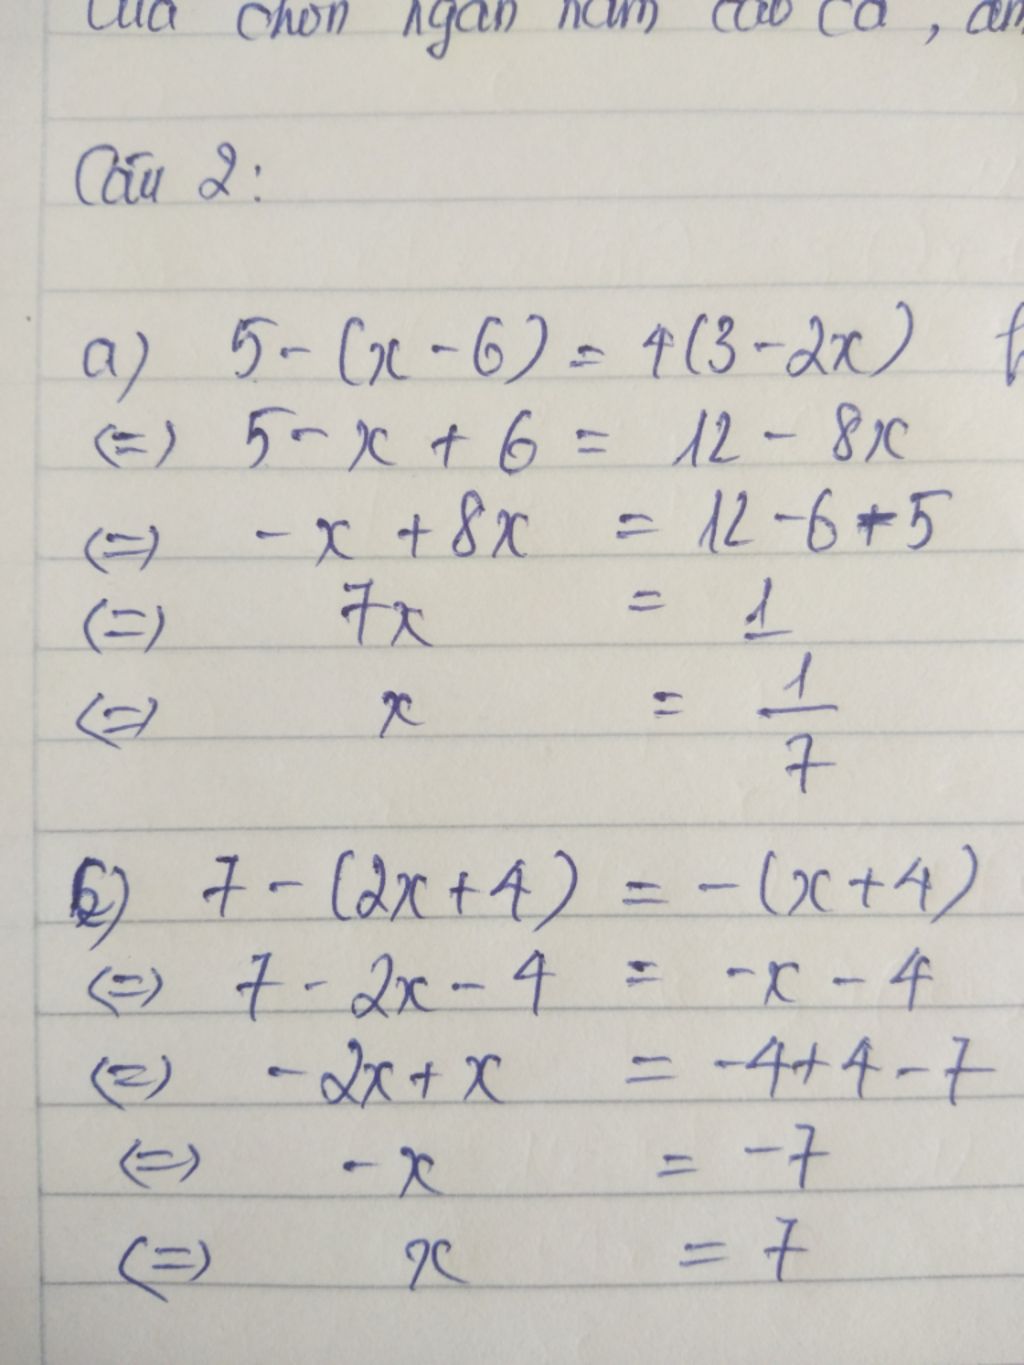 chọn ngàn năm cao cả,
Câu 2:
a) 5 - (x - 6) = 4(3 - 2x)
(=) 5 - x + 6 = 12 - 8x
(=) - x + 8x = 12 - 6 - 5
(=) 7x = 1
(=) x = 1/7
b) 7 - (2x + 4) = - (x + 4)
(=) 7 - 2x - 4 = -x - 4
(=) - 2x + x = -4 + 4 - 7
(=) - x = -7
(=) x = 7